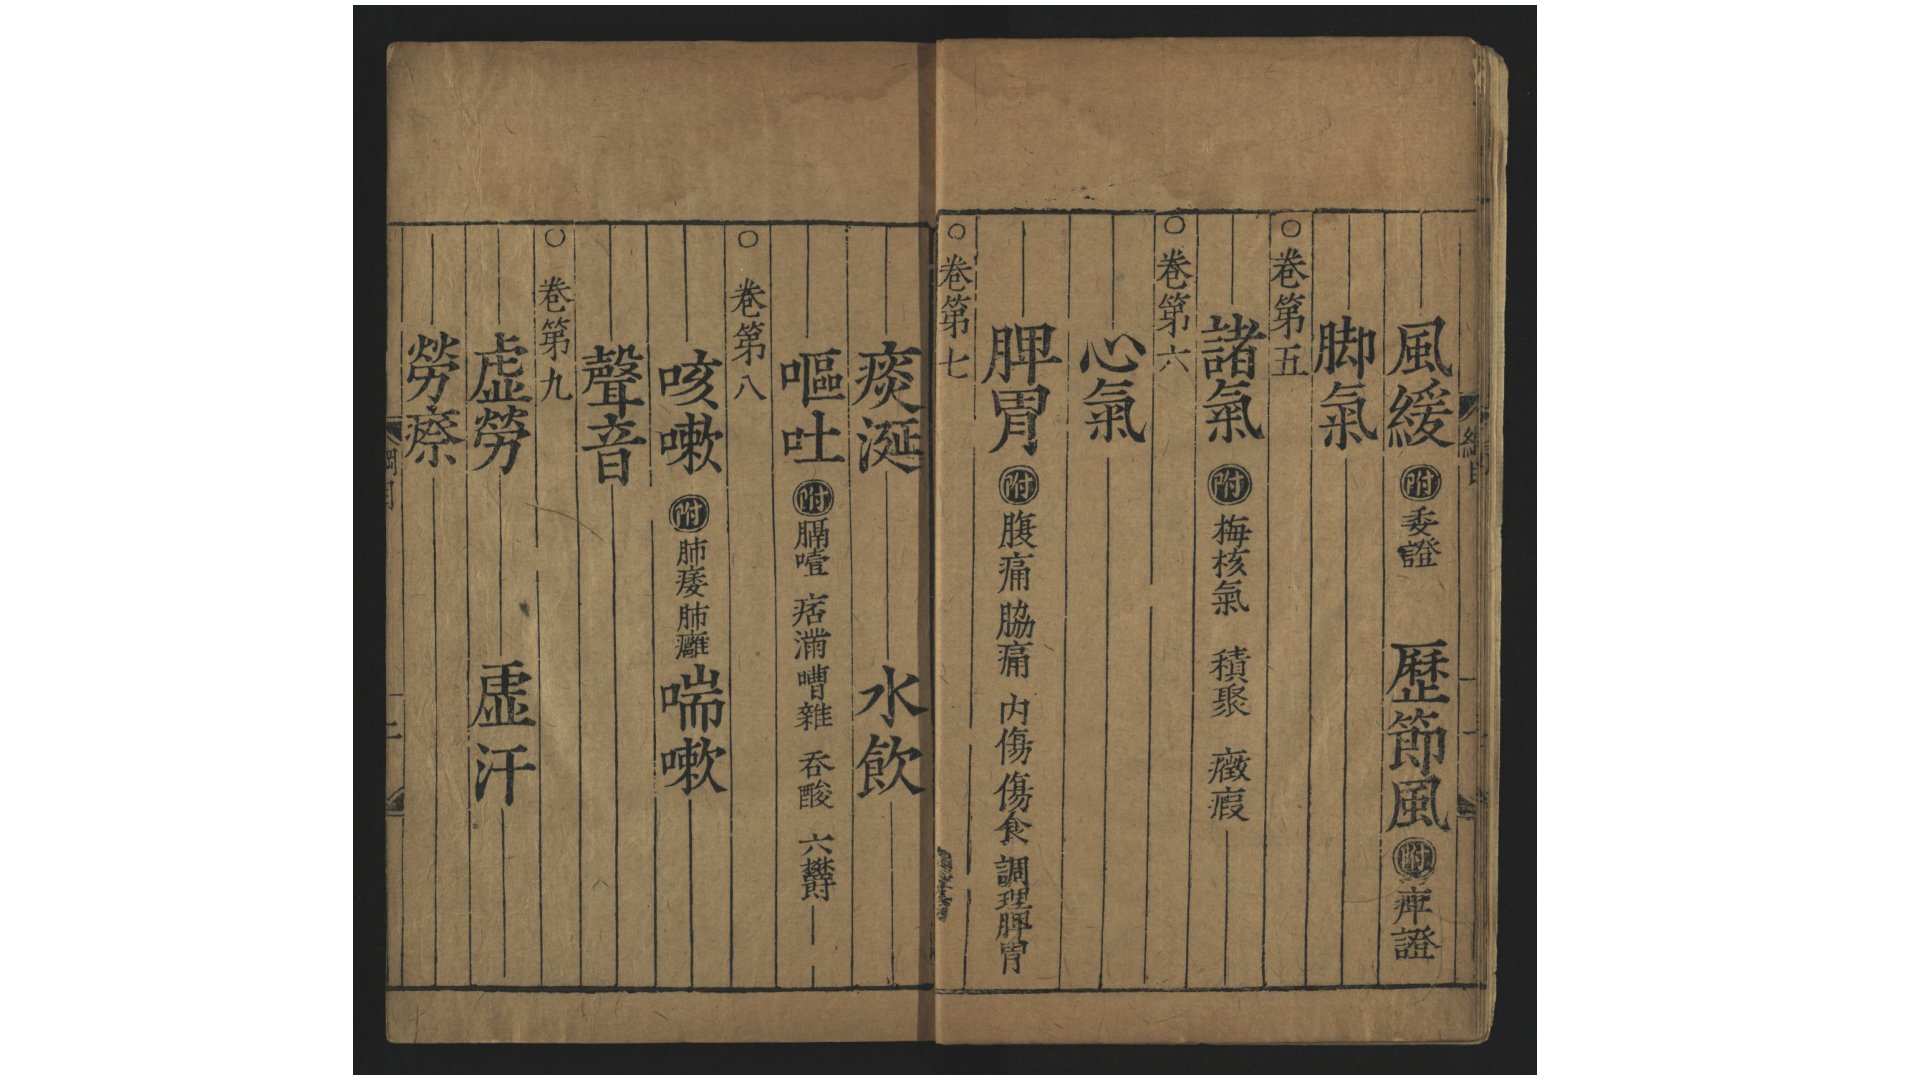 風緩 附 委證 歷節風 附 痺證
脚氣
○卷第五
諸氣 附 梅核氣 積聚 癥瘕
○卷第六
心氣
脾胃 附 腹痛 脇痛 內傷 傷食 調理脾胃
○卷第七
痰涎 水飲
嘔吐 附 膈噎 痞滿 嘈雜 吞酸 六欝
○卷第八
咳嗽 附 肺痿 肺癰 喘嗽
聲音
○卷第九
虛勞 虛汗
勞瘵
綱目